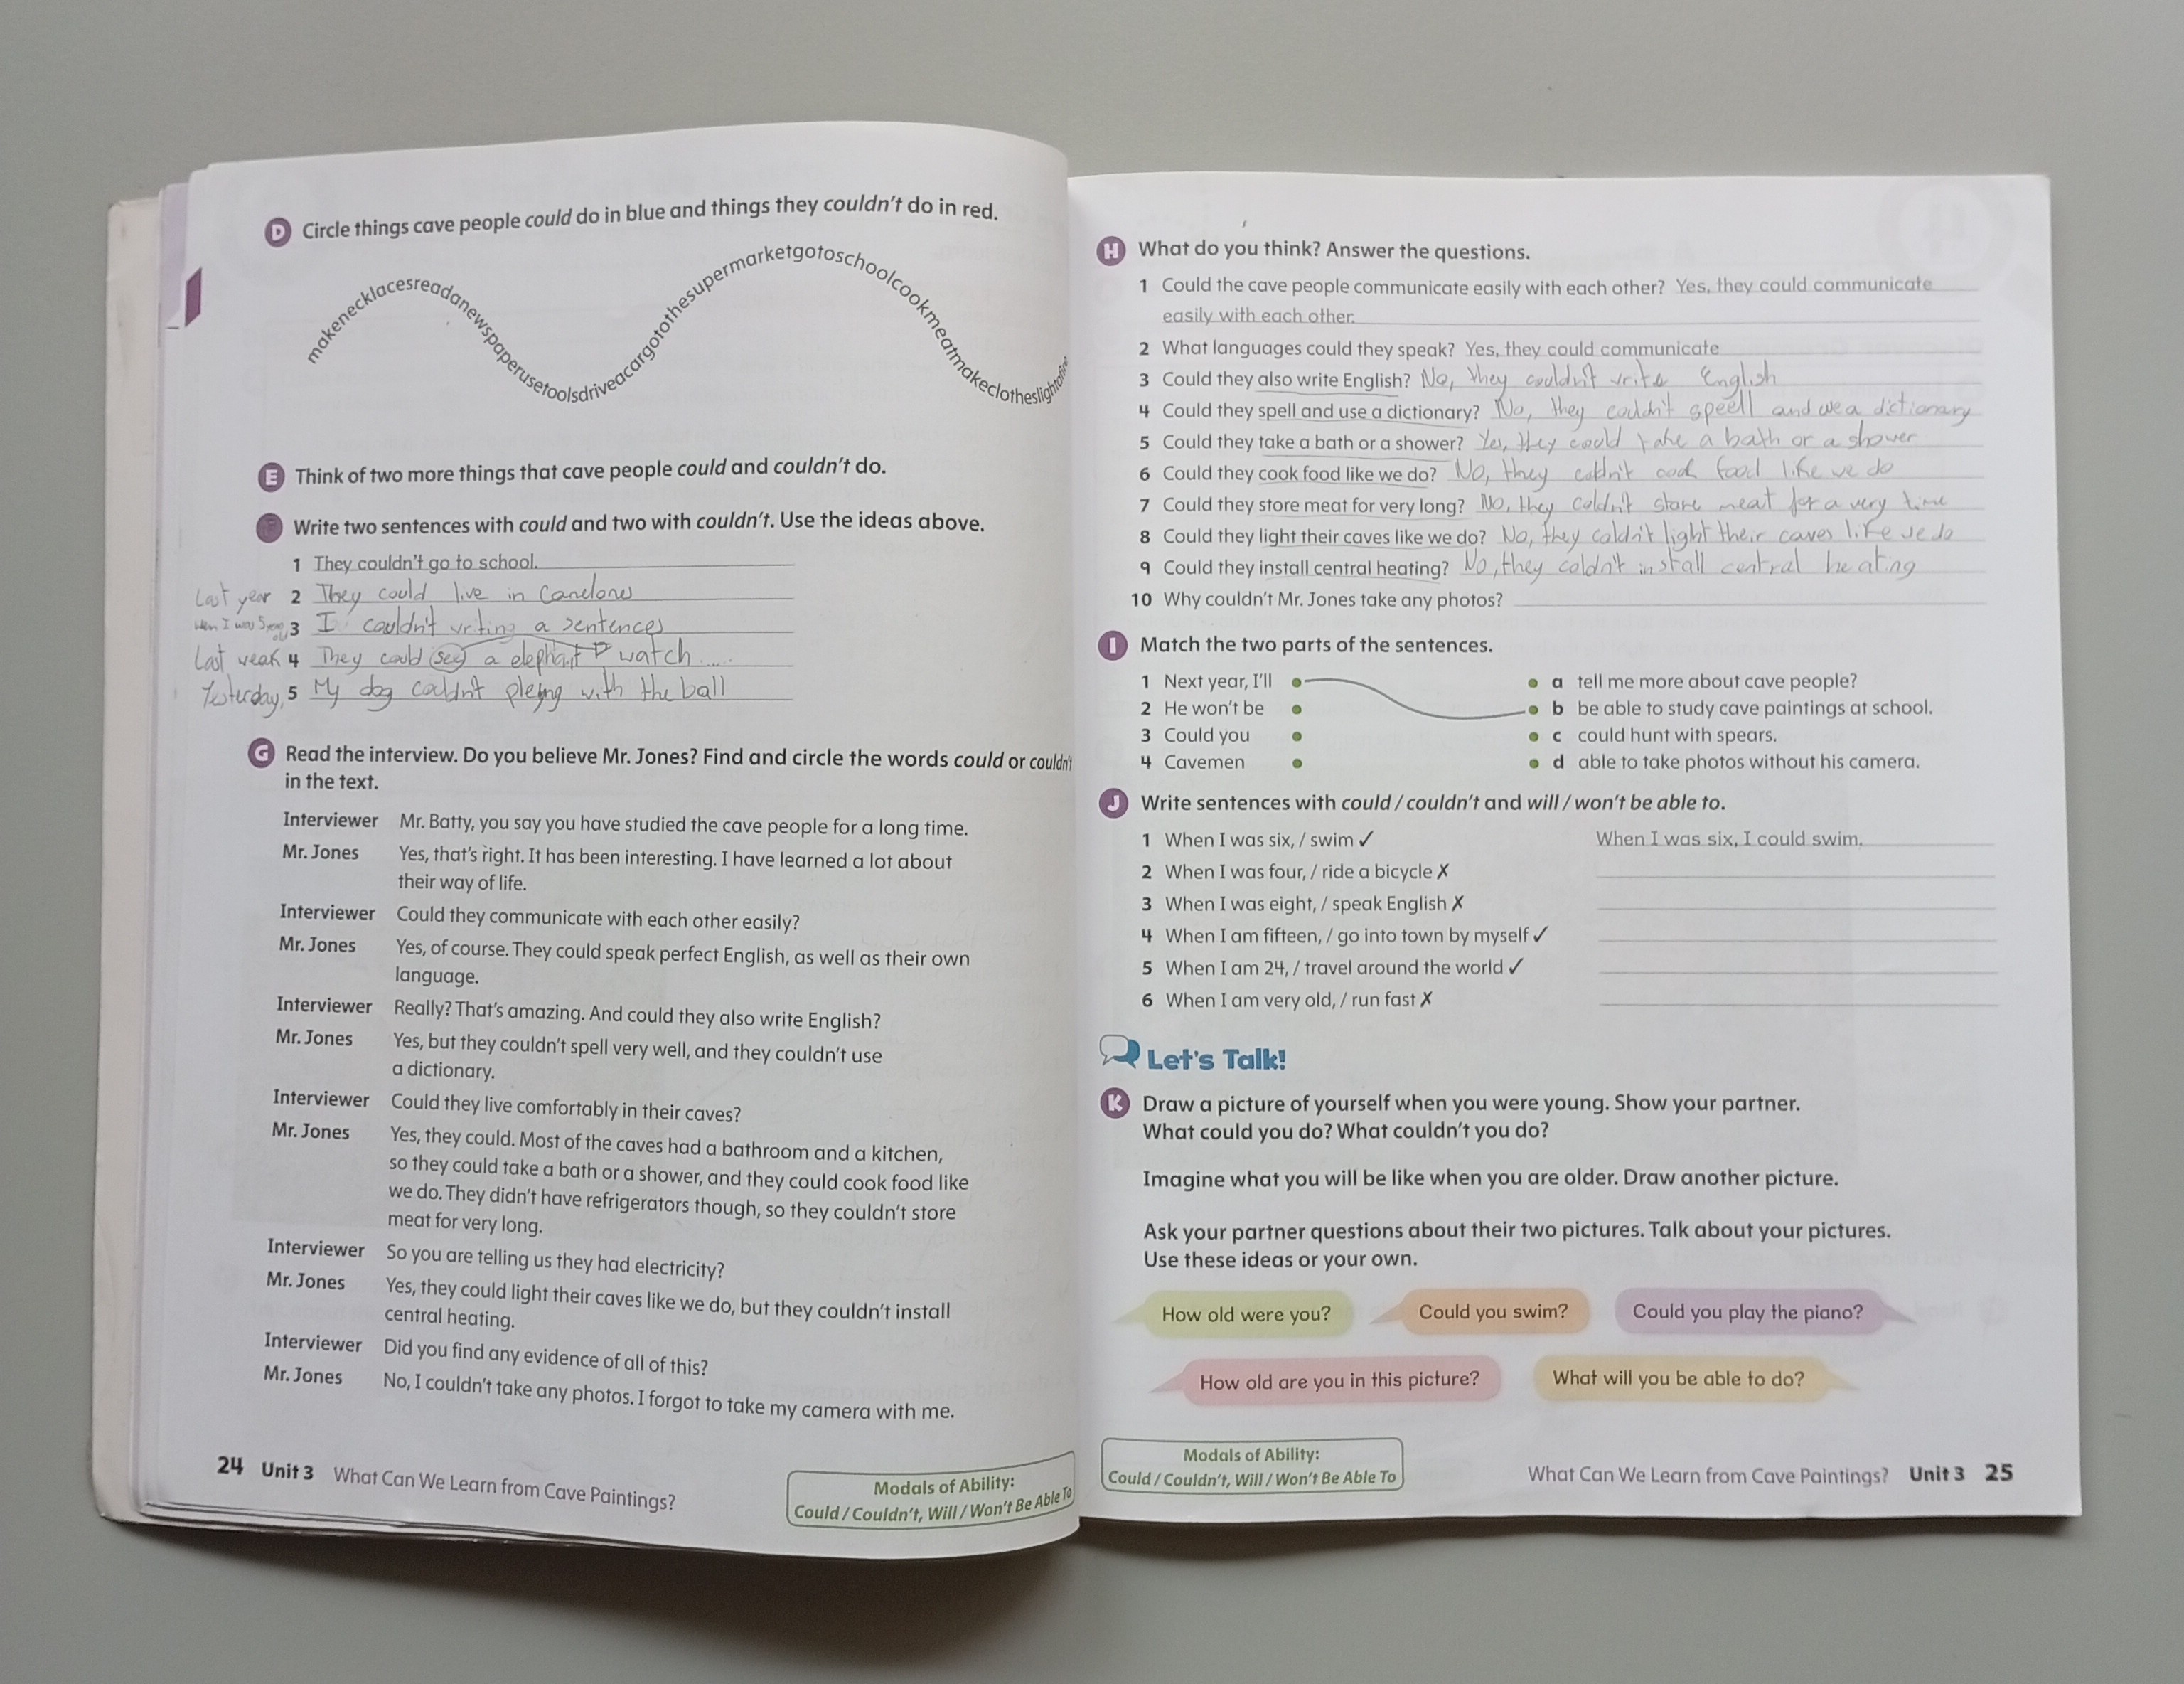 D Circle things cave people could do in blue and things they couldn't do in red.
makenecklacesreadanewspaperusetoolsdriveacargotothesupermarketgotoschoolcookmeatmakeclotheslightafire
E Think of two more things that cave people could and couldn't do.
F Write two sentences with could and two with couldn't. Use the ideas above.
1 They couldn't go to school.
Last year 2 They could live in Canelones
When I was 5 years old 3 I couldn't writing a sentences
Last weak 4 They could see a elephant watch.....
Yesterday, 5 My dog couldn't pleyng with the ball
G Read the interview. Do you believe Mr. Jones? Find and circle the words could or couldn't
in the text.
Interviewer Mr. Batty, you say you have studied the cave people for a long time.
Mr. Jones Yes, that's right. It has been interesting. I have learned a lot about
their way of life.
Interviewer Could they communicate with each other easily?
Mr. Jones Yes, of course. They could speak perfect English, as well as their own
language.
Interviewer Really? That's amazing. And could they also write English?
Mr. Jones Yes, but they couldn't spell very well, and they couldn't use
a dictionary.
Interviewer Could they live comfortably in their caves?
Mr. Jones Yes, they could. Most of the caves had a bathroom and a kitchen,
so they could take a bath or a shower, and they could cook food like
we do. They didn't have refrigerators though, so they couldn't store
meat for very long.
Interviewer So you are telling us they had electricity?
Mr. Jones Yes, they could light their caves like we do, but they couldn't install
central heating.
Interviewer Did you find any evidence of all of this?
Mr. Jones No, I couldn't take any photos. I forgot to take my camera with me.
24 Unit 3 What Can We Learn from Cave Paintings?
Modals of Ability:
Could / Couldn't, Will / Won't Be Able To
H What do you think? Answer the questions.
1 Could the cave people communicate easily with each other? Yes, they could communicate
easily with each other.
2 What languages could they speak? Yes, they could communicate
3 Could they also write English? No, they couldn't write English
4 Could they spell and use a dictionary? No, they couldn't speell and use a dictionary
5 Could they take a bath or a shower? Yes, they could take a bath or a shower
6 Could they cook food like we do? No, they coldn't cook food like we do
7 Could they store meat for very long? No, they coldn't store meat for a very time
8 Could they light their caves like we do? No, they coldn't light their caves like we do
9 Could they install central heating? No, they coldn't install central heating
10 Why couldn't Mr. Jones take any photos?
I Match the two parts of the sentences.
1 Next year, I'll a tell me more about cave people?
2 He won't be b be able to study cave paintings at school.
3 Could you c could hunt with spears.
4 Cavemen d able to take photos without his camera.
J Write sentences with could / couldn't and will / won't be able to.
1 When I was six, / swim ✓ When I was six, I could swim.
2 When I was four, / ride a bicycle ✗
3 When I was eight, / speak English ✗
4 When I am fifteen, / go into town by myself ✓
5 When I am 24, / travel around the world ✓
6 When I am very old, / run fast ✗
Let's Talk!
K Draw a picture of yourself when you were young. Show your partner.
What could you do? What couldn't you do?
Imagine what you will be like when you are older. Draw another picture.
Ask your partner questions about their two pictures. Talk about your pictures.
Use these ideas or your own.
How old were you? Could you swim? Could you play the piano?
How old are you in this picture? What will you be able to do?
Modals of Ability:
Could / Couldn't, Will / Won't Be Able To
What Can We Learn from Cave Paintings? Unit 3 25